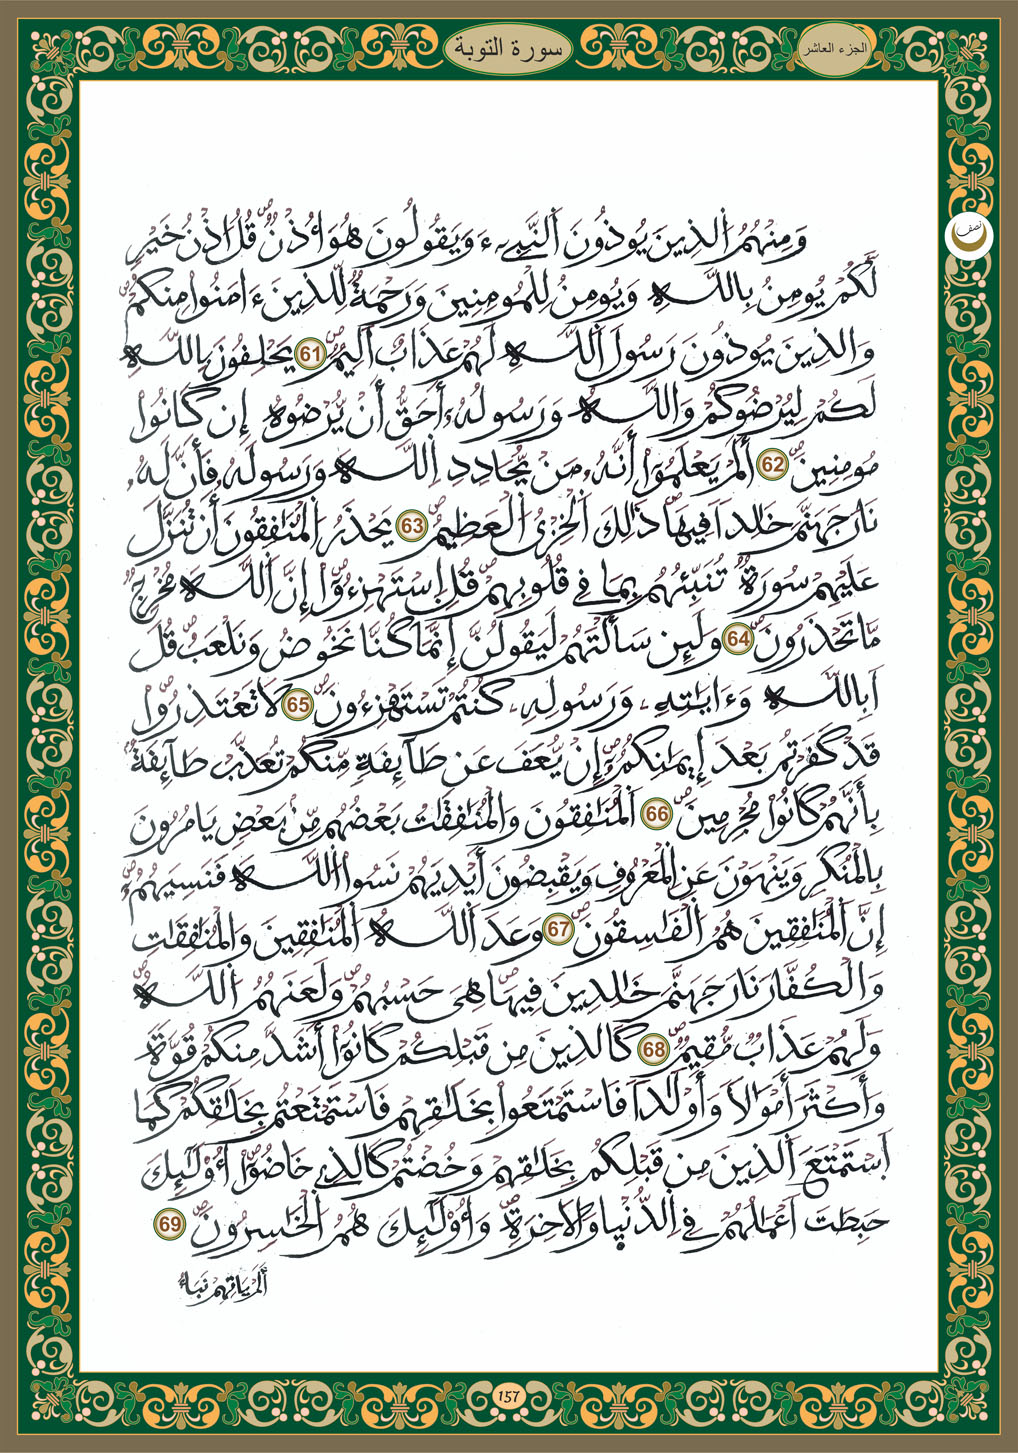 سورة التوبة
الجزء العاشر
نصف
وَمِنْهُمُ الذِينَ يُوذُونَ اَ۬لنَّبِےٓءَ وَيَقُولُونَ هُوَ أُذْنٞ قُلُ اذْنُ خَيْرٖ
لَّكُمْ يُومِنُ بِاللَّهِ وَيُومِنُ لِلْمُومِنِينَ وَرَحْمَةٞ لِّلذِينَ ءَامَنُوا مِنكُمْ
وَالذِينَ يُوذُونَ رَسُولَ اَ۬للَّهِ لَهُمْ عَذَابٌ اَلِيمٞ 61 يَحْلِفُونَ بِاللَّهِ
لَكُمْ لِيُرْضُوكُمْ وَاللَّهُ وَرَسُولُهُۥ أَحَقُّ أَنْ يُّرْضُوهُ إِن كَانُوا
مُومِنِينَ 62 أَلَمْ يَعْلَمُوٓا أَنَّهُۥ مَنْ يُّحَادِدِ اِ۬للَّهَ وَرَسُولَهُۥ فَأَنَّ لَهُۥ
نَارَ جَهَنَّمَ خَٰلِداٗ فِيهَا ذَٰلِكَ اَ۬لْخِزْيُ اُ۬لْعَظِيمُ 63 يَحْذَرُ اُ۬لْمُنَٰفِقُونَ أَن تُنَزَّلَ
عَلَيْهِمْ سُورَةٞ تُنَبِّئُهُم بِمَا فِے قُلُوبِهِمْ قُلِ اِ۪سْتَهْزِءُوٓا إِنَّ اَ۬للَّهَ مُخْرِجٞ
مَّا تَحْذَرُونَ 64 وَلَئِن سَأَلْتَهُمْ لَيَقُولُنَّ إِنَّمَا كُنَّا نَخُوضُ وَنَلْعَبُ قُلَ
اَبِاللَّهِ وَءَايَٰتِهِۦ وَرَسُولِهِۦ كُنتُمْ تَسْتَهْزِءُونَ 65 لَا تَعْتَذِرُوا
قَدْ كَفَرْتُم بَعْدَ إِيمَٰنِكُمُۥٓ إِنْ يُّعْفَ عَن طَآئِفَةٖ مِّنكُمْ تُعَذَّبْ طَآئِفَةُۢ
بِأَنَّهُمْ كَانُوا مُجْرِمِينَ 66 اَ۬لْمُنَٰفِقُونَ وَالْمُنَٰفِقَٰتُ بَعْضُهُم مِّنۢ بَعْضٖ يَامُرُونَ
بِالْمُنكَرِ وَيَنْهَوْنَ عَنِ اِ۬لْمَعْرُوفِ وَيَقْبِضُونَ أَيْدِيَهُمْ نَسُوا اُ۬للَّهَ فَنَسِيَهُمُۥٓ
إِنَّ اَ۬لْمُنَٰفِقِينَ هُمُ اُ۬لْفَٰسِقُونَ 67 وَعَدَ اَ۬للَّهُ اُ۬لْمُنَٰفِقِينَ وَالْمُنَٰفِقَٰتِ
وَالْكُفَّارَ نَارَ جَهَنَّمَ خَٰلِدِينَ فِيهَا هِيَ حَسْبُهُمْ وَلَعَنَهُمُ اُ۬للَّهُ
وَلَهُمْ عَذَابٞ مُّقِيمٞ 68 كَالذِينَ مِن قَبْلِكُمْ كَانُوٓا أَشَدَّ مِنكُمْ قُوَّةٗ
وَأَكْثَرَ أَمْوَٰلاٗ وَأَوْلَٰداٗ فَاسْتَمْتَعُوا بِخَلَٰقِهِمْ فَاسْتَمْتَعْتُم بِخَلَٰقِكُمْ كَمَا
اَ۪سْتَمْتَعَ اَ۬لذِينَ مِن قَبْلِكُم بِخَلَٰقِهِمْ وَخُضْتُمْ كَالذِے خَاضُوٓا أُوْلَٰٓئِكَ
حَبِطَتَ اَعْمَٰلُهُمْ فِے اِ۬لدُّنْيَا وَالَاخِرَةِ وَأُوْلَٰٓئِكَ هُمُ اُ۬لْخَٰسِرُونَ 69
أَلَمْ يَاتِهِمْ نَبَأُ
157